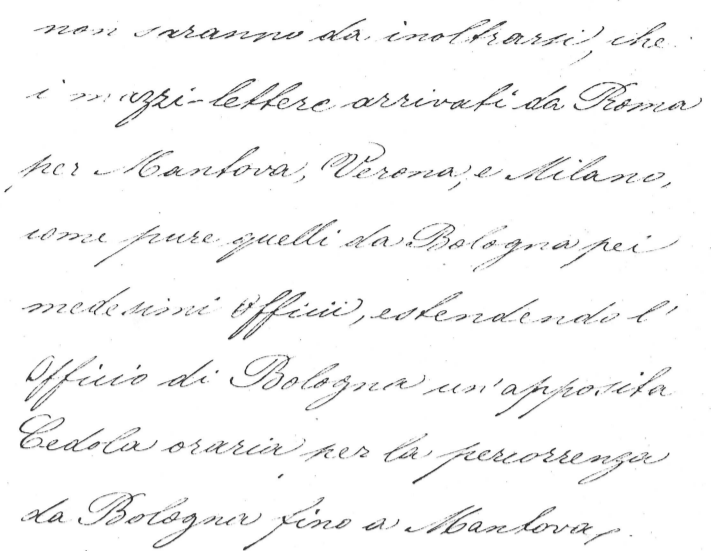 non saranno da inoltrarsi, che
i mazzi-lettere arrivati da Roma
per Mantova, Verona, e Milano,
come pure quelli da Bologna pei
medesimi Officii, estendendo l'
Officio di Bologna un'apposita
Cedola oraria per la percorrenza
da Bologna fino a Mantova.